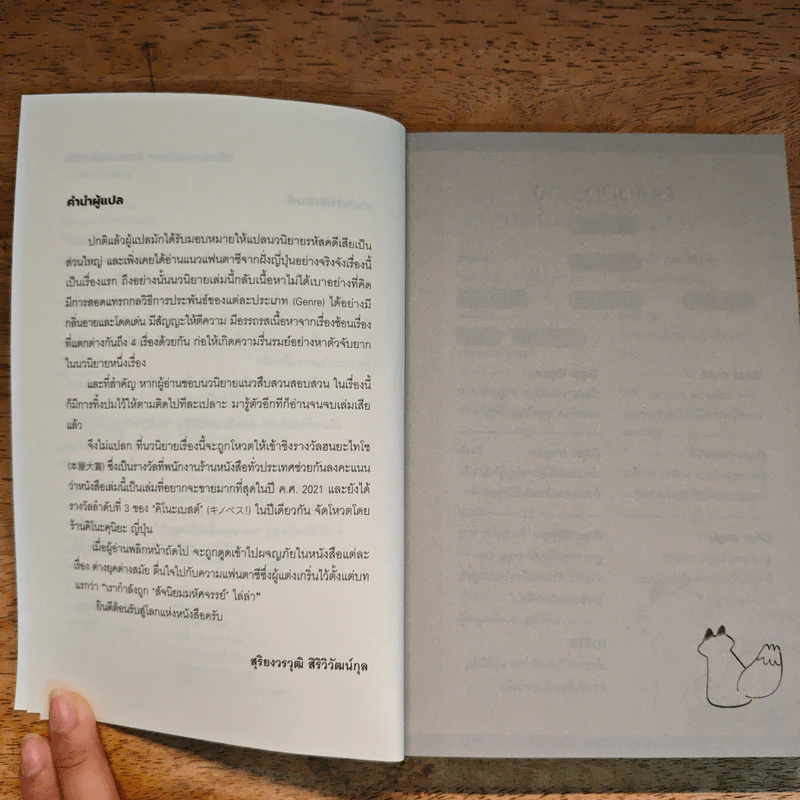 คำนำผู้แปล
ปกติแล้วผู้แปลมักได้รับมอบหมายให้แปลนวนิยายรหัสคดีเสียเป็น
ส่วนใหญ่ และเพิ่งเคยได้อ่านแนวแฟนตาซีจากฝั่งญี่ปุ่นอย่างจริงจังเรื่องนี้
เป็นเรื่องแรก ถึงอย่างนั้นนวนิยายเล่มนี้กลับเนื้อหาไม่ได้เบาอย่างที่คิด
มีการสอดแทรกกลวิธีการประพันธ์ของแต่ละประเภท (Genre) ได้อย่างมี
กลิ่นอายและโดดเด่น มีสัญญะให้ตีความ มีอรรถรสเนื้อหาจากเรื่องซ้อนเรื่อง
ที่แตกต่างกันถึง 4 เรื่องด้วยกัน ก่อให้เกิดความรื่นรมย์อย่างหาตัวจับยาก
ในนวนิยายหนึ่งเรื่อง
และที่สำคัญ หากผู้อ่านชอบนวนิยายแนวสืบสวนสอบสวน ในเรื่องนี้
ก็มีการทิ้งปมไว้ให้ตามติดไปทีละเปลาะ มารู้ตัวอีกทีก็อ่านจนจบเล่มเสีย
แล้ว
จึงไม่แปลก ที่นวนิยายเรื่องนี้จะถูกโหวตให้เข้าชิงรางวัลฮนยะไทโช
(本屋大賞) ซึ่งเป็นรางวัลที่พนักงานร้านหนังสือทั่วประเทศช่วยกันลงคะแนน
ว่าหนังสือเล่มนี้เป็นเล่มที่อยากจะขายมากที่สุดในปี ค.ศ. 2021 และยังได้
รางวัลลำดับที่ 3 ของ 'คิโนะเบสต์' (キノベス!) ในปีเดียวกัน จัดโหวตโดย
ร้านคิโนะคุนิยะ ญี่ปุ่น
เมื่อผู้อ่านพลิกหน้าถัดไป จะถูกดูดเข้าไปผจญภัยในหนังสือแต่ละ
เรื่อง ต่างยุคต่างสมัย ตื่นใจไปกับความแฟนตาซีซึ่งผู้แต่งเกริ่นไว้ตั้งแต่บท
แรกว่า "เรากำลังถูก 'สัจนิยมมหัศจรรย์' ไล่ล่า"
ยินดีต้อนรับสู่โลกแห่งหนังสือครับ
สุริยงวรวุฒิ สิริวิวัฒน์กุล